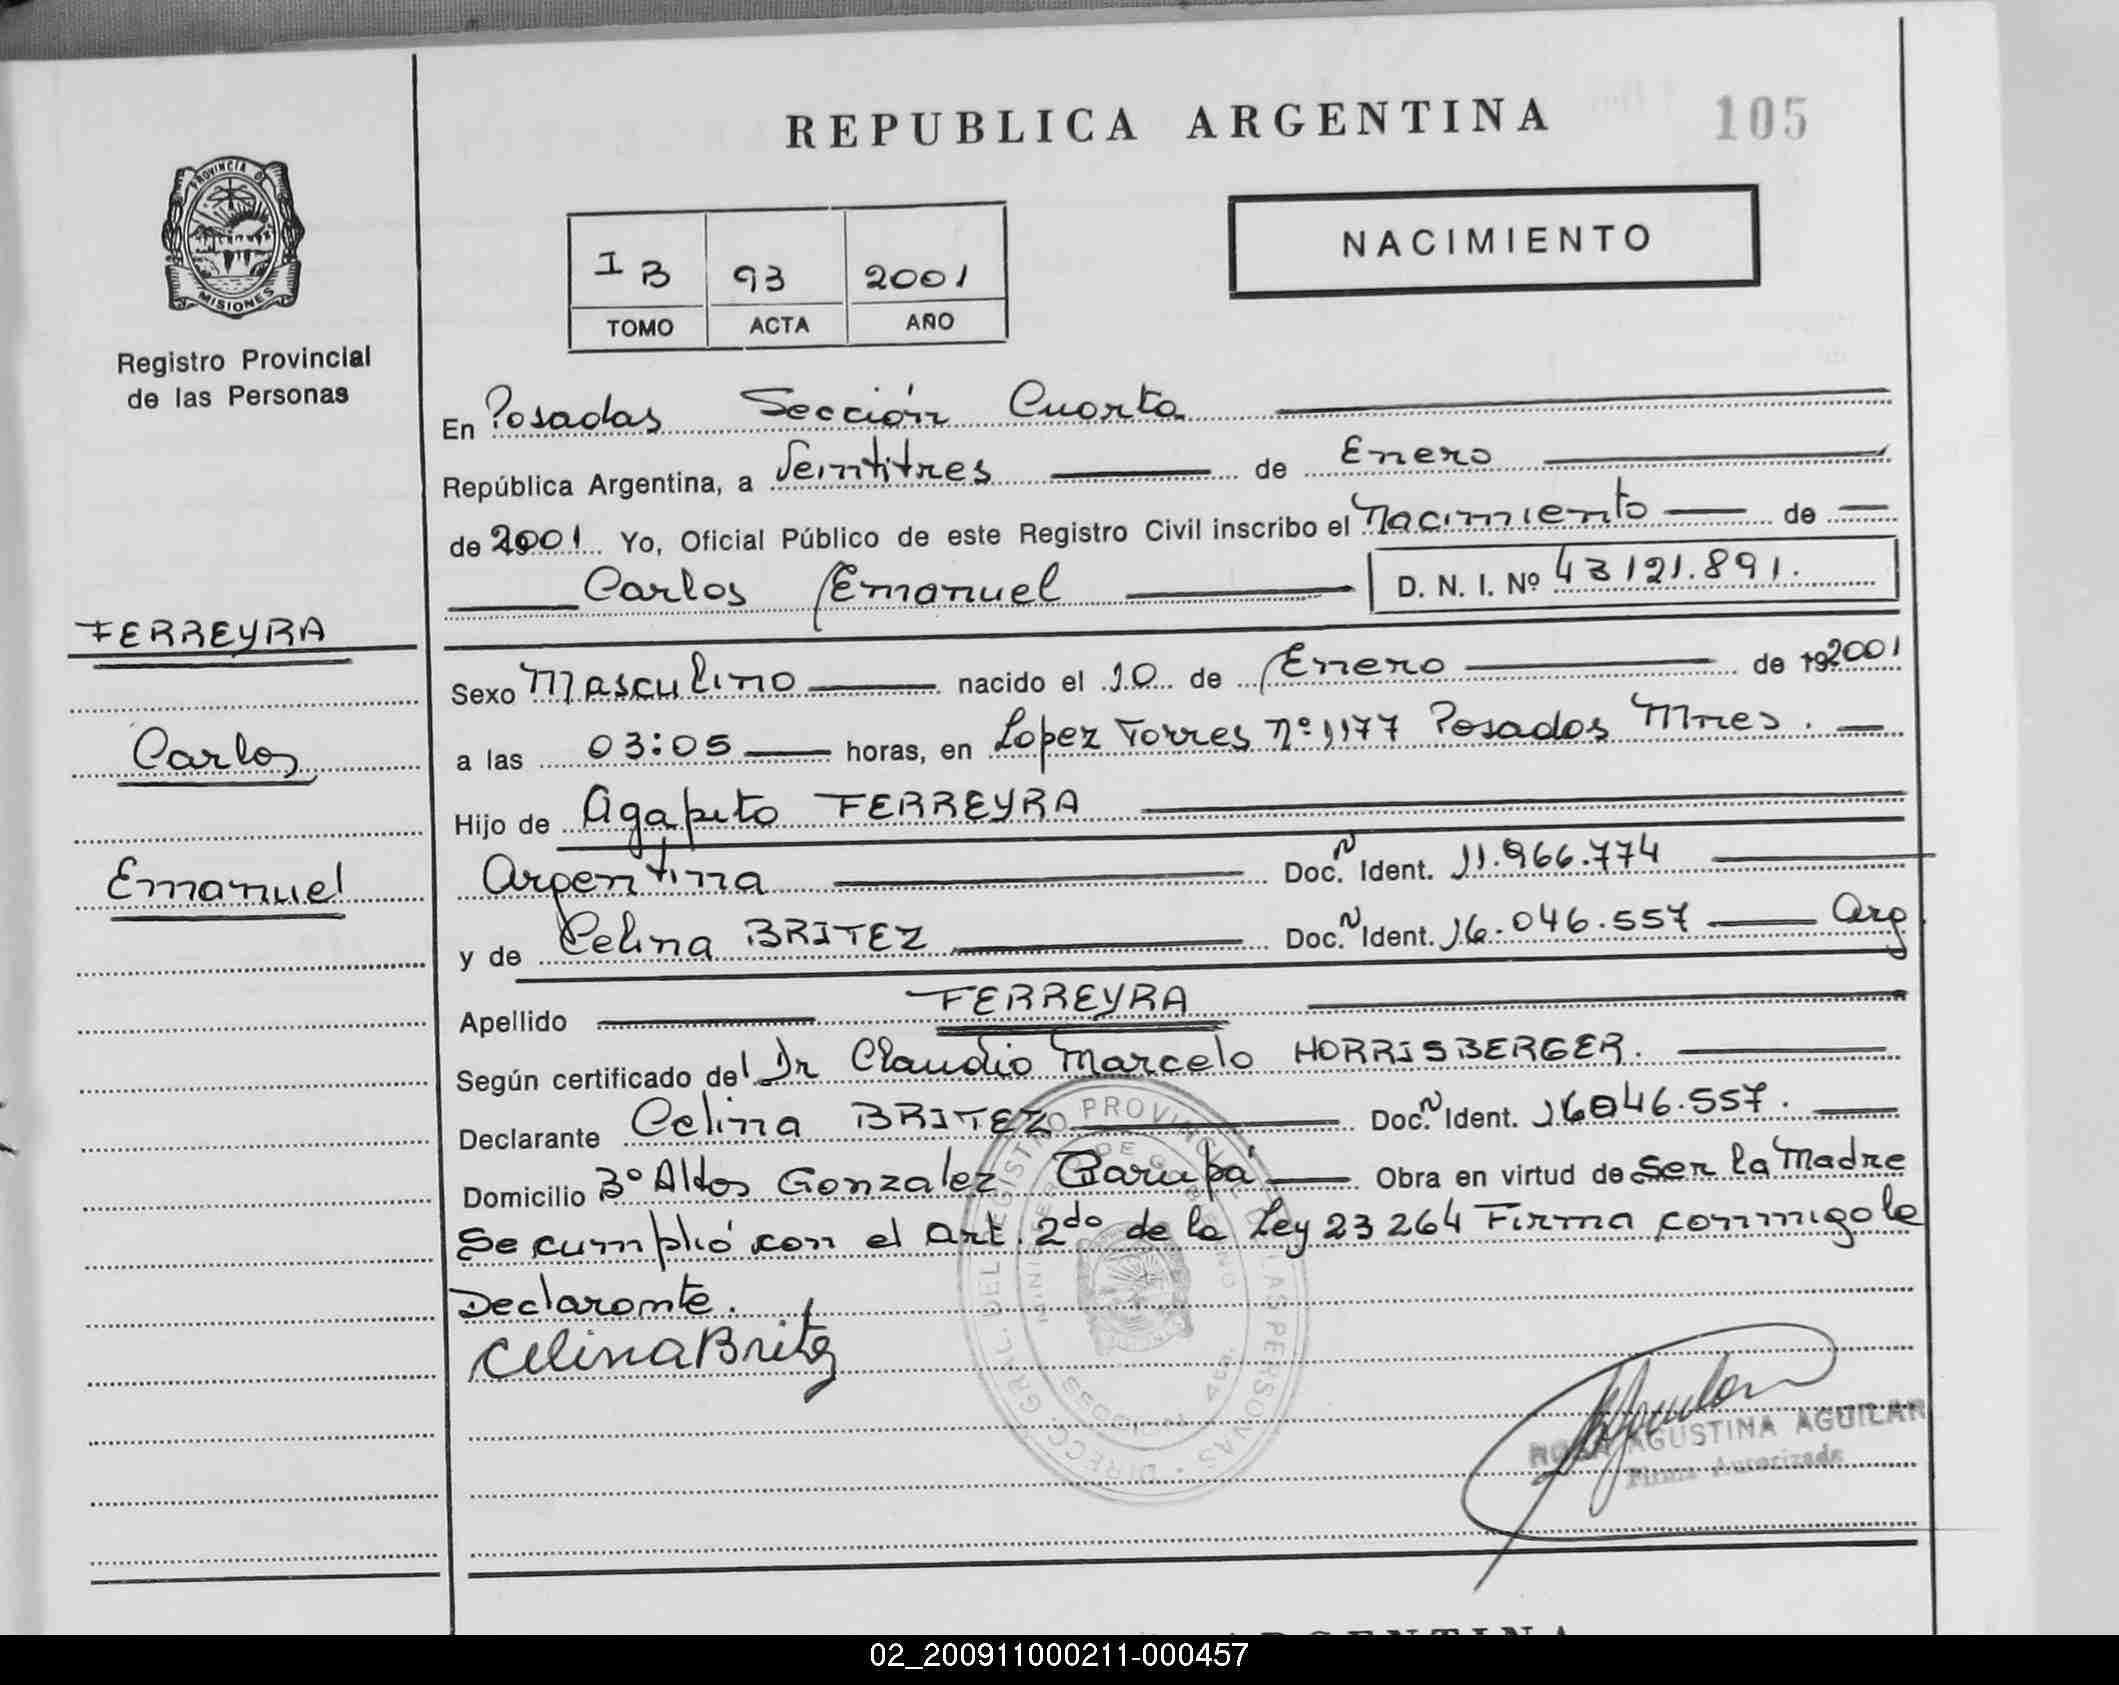 REPUBLICA ARGENTINA
105
PROVINCIA DE
MISIONES
Registro Provincial
de las Personas
I B 93 2001
TOMO ACTA AÑO
NACIMIENTO
En Posadas Sección Cuarta
República Argentina, a Veintitres de Enero
de 2001 Yo, Oficial Público de este Registro Civil inscribo el Nacimiento de
Carlos Emanuel D. N. I. Nº 43121.891.
FERREYRA
Carlos
Emanuel
Sexo Masculino nacido el 10 de Enero de 192001
a las 03:05 horas, en Lopez Torres Nº 1177 Posadas Mnes.
Hijo de Agapito FERREYRA
Argentina Doc. N Ident. 11.966.774
y de Celina BRITEZ Doc. N Ident. 16.046.557 Arg
Apellido FERREYRA
Según certificado del Dr Claudio Marcelo HORRISBERGER.
Declarante Celina BRITEZ Doc. N Ident. 16046.557.
Domicilio Bº Altos Gonzalez Garupá Obra en virtud de ser la Madre
Se cumplió con el art. 2do de la Ley 23264 Firma conmigo la
Declarante.
Celina Britez
DIREC. GRAL. DEL REGISTRO PROVINCIAL DE LAS PERSONAS
MINISTERIO DE GOBIERNO
SECCION 4ta.
ROSA AGUSTINA AGUILAR
Firma Autorizada
ARGENTINA
02_200911000211-000457